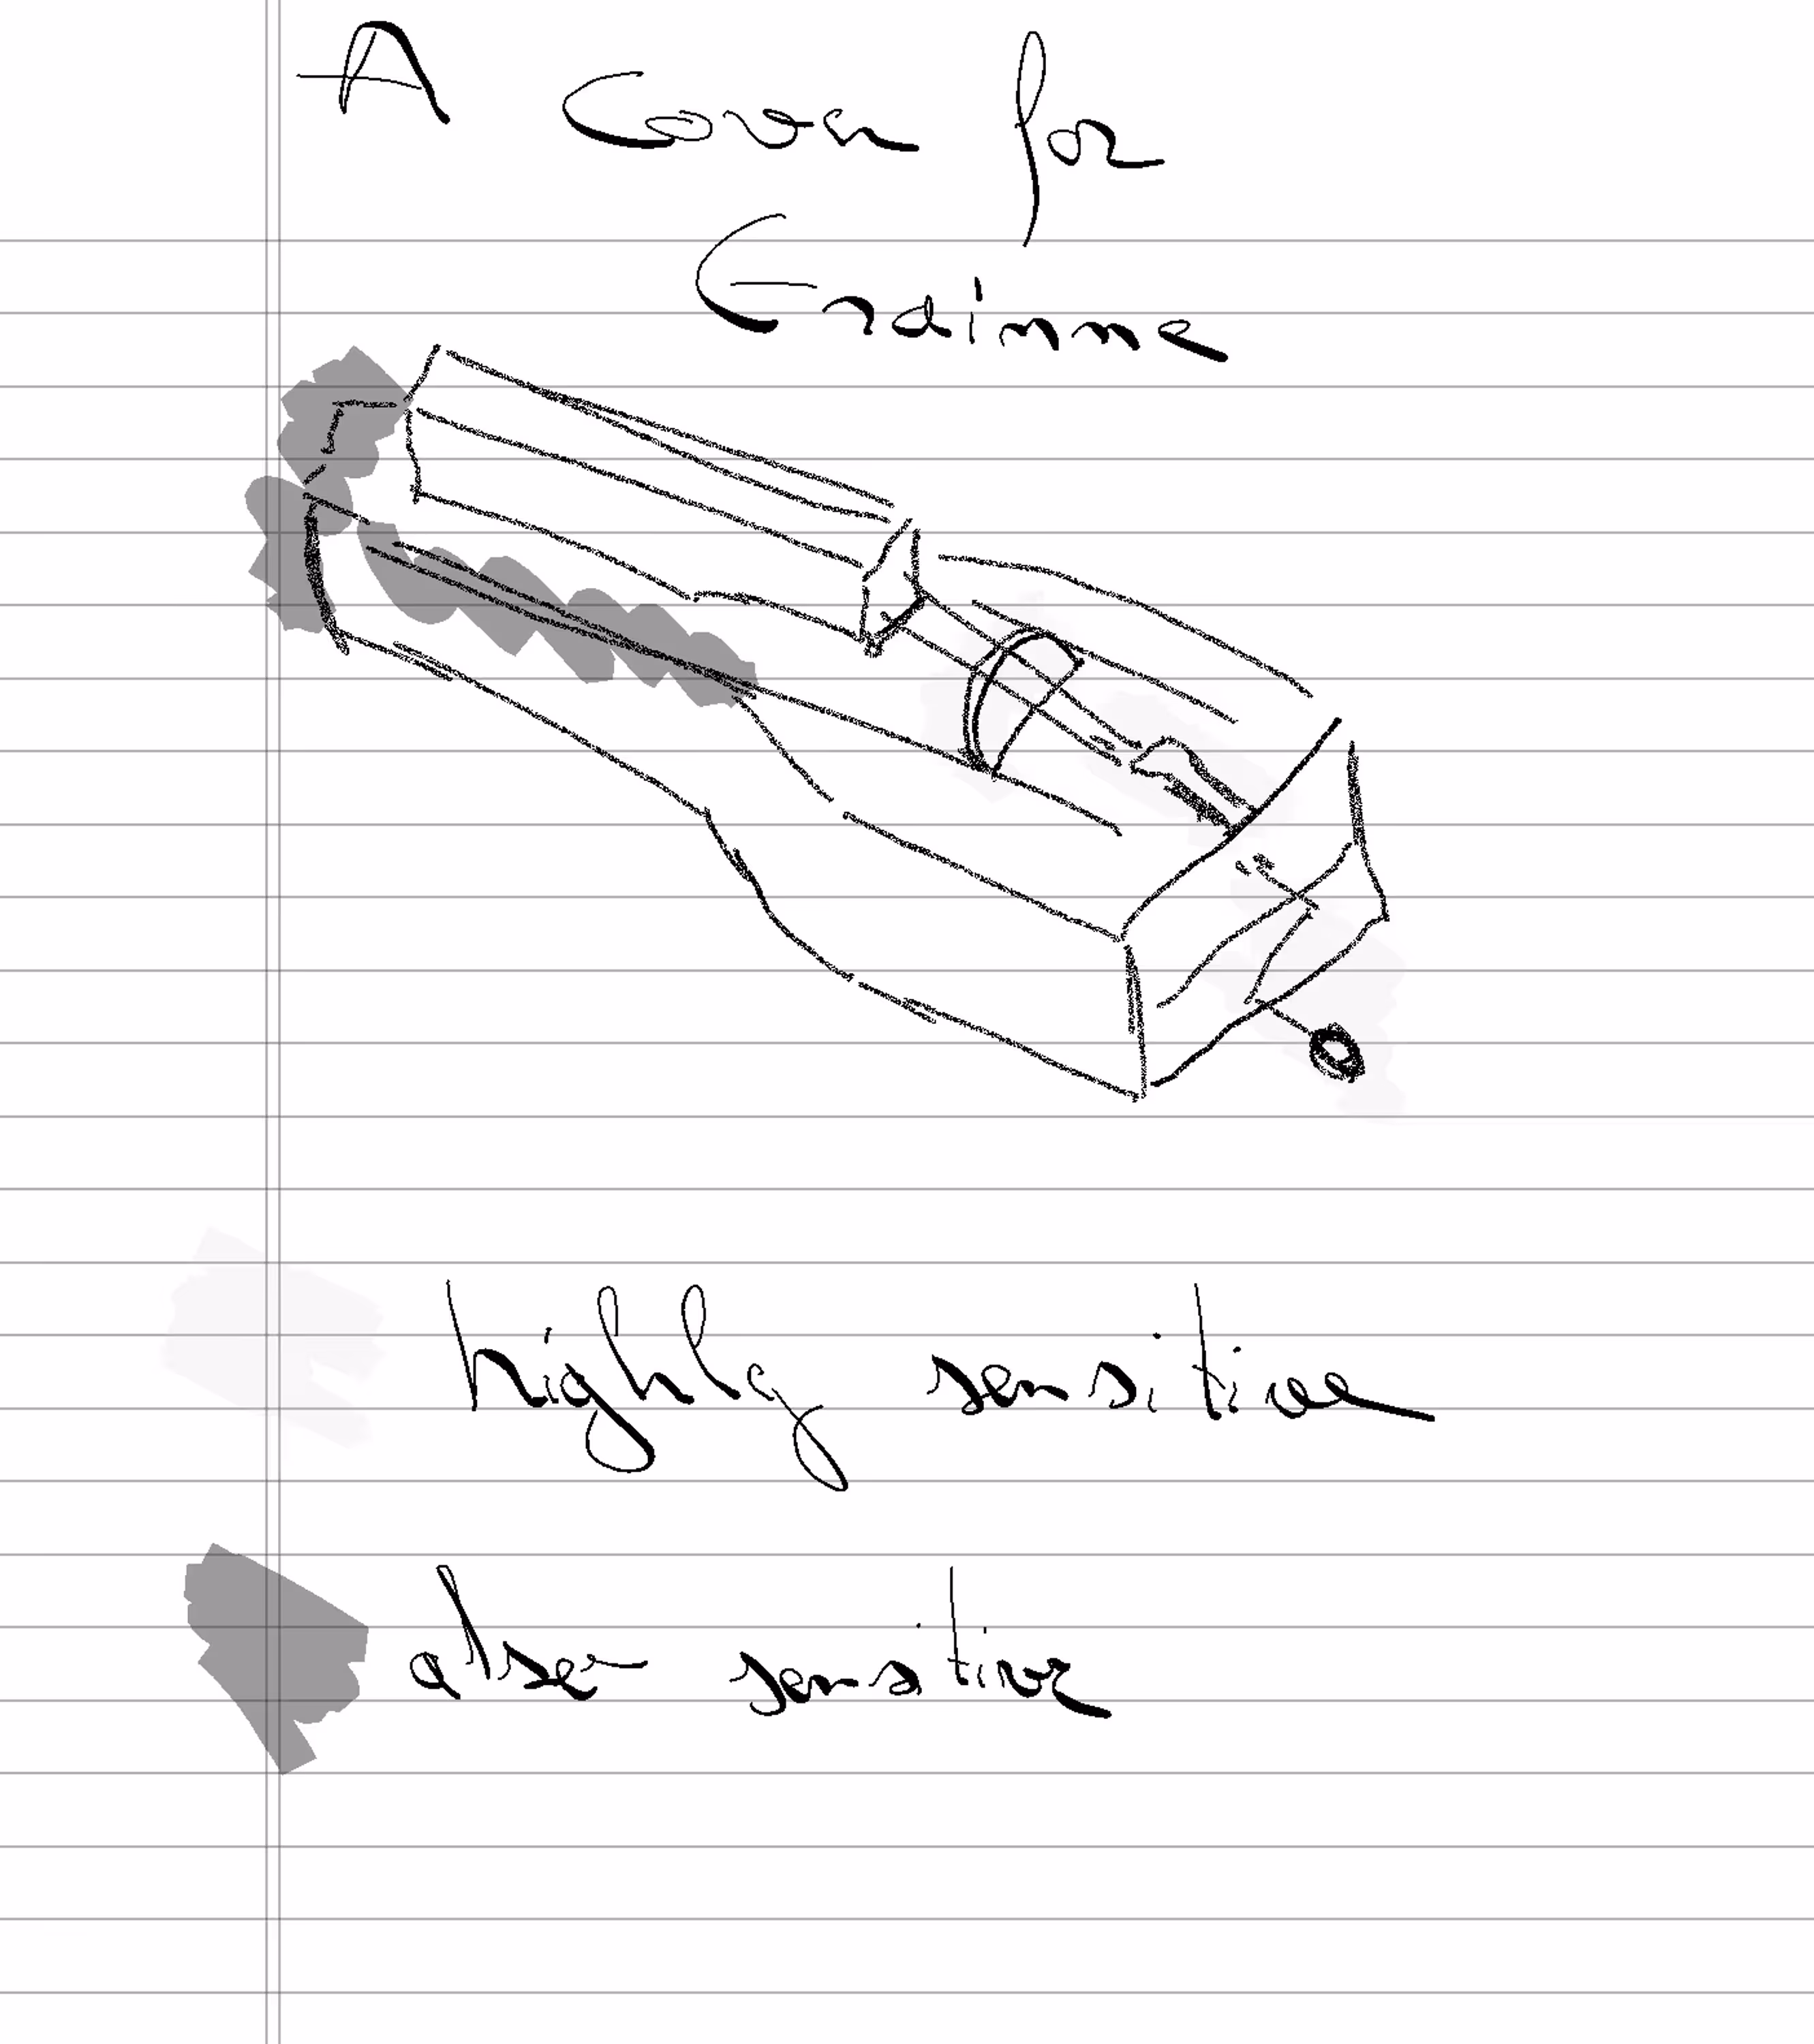 A Cover for
Erdinme
highly sensitive
also sensitive